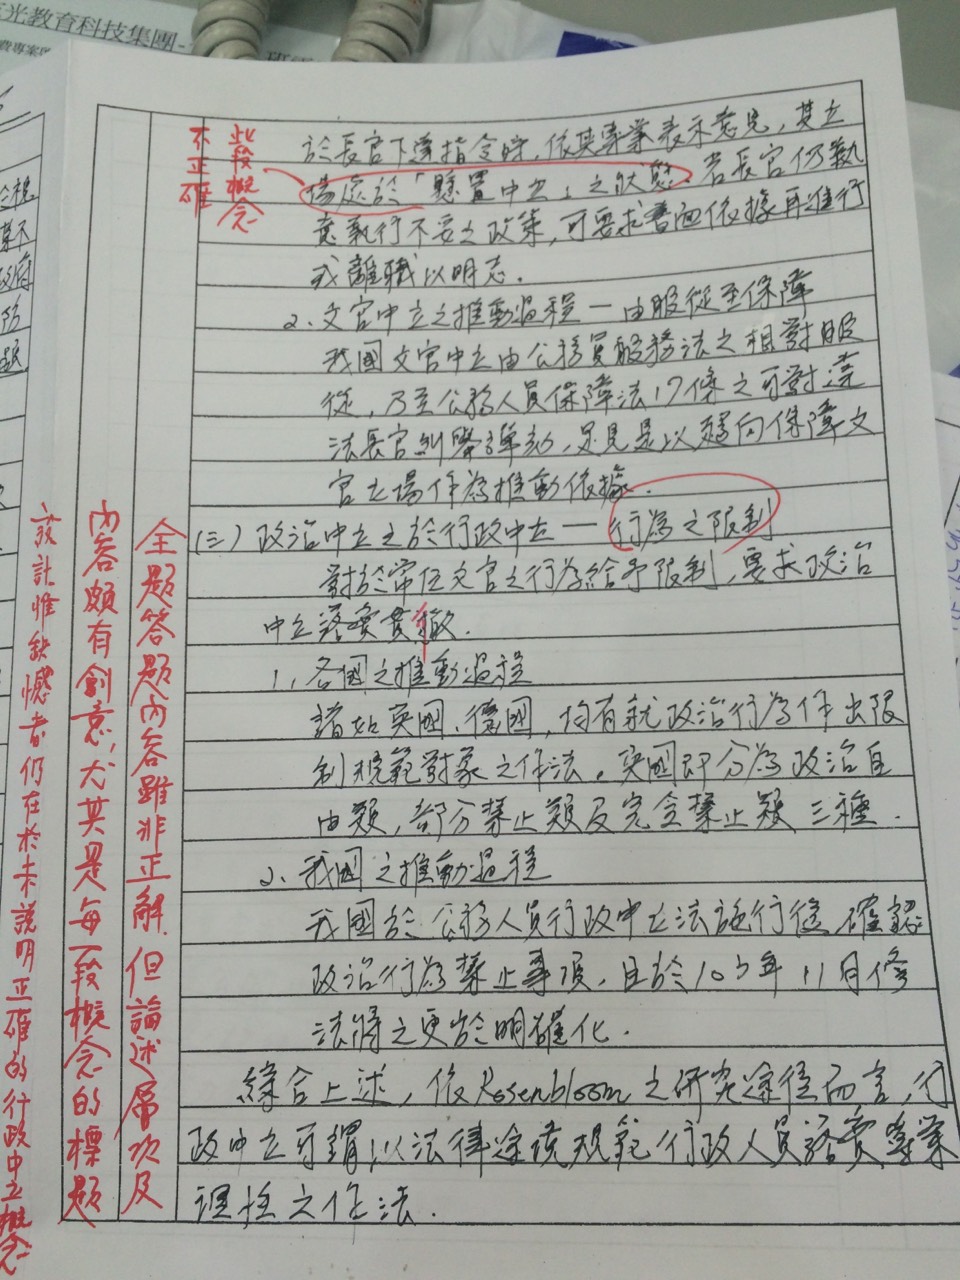 光教育科技集團-
不正確
此段概念
於長官下達指令時,依其專業表示意見,其立
場處於「懸置中立」之狀態.若長官仍執
意執行不妥之政策,可要求書面依據再進行
或離職以明志.
2、文官中立之推動過程—由服從至保障
我國文官中立由公務員服務法之相對服
從,乃至公務人員保障法17條之可對違
法長官糾舉彈劾,足見是以趨向保障文
官立場作為推動依據.
(三)政治中立之於行政中立—行為之限制
對於常任文官之行為給予限制,要求政治
中立落實貫徹.
1、各國之推動過程
諸如英國、德國,均有就政治行為作出限
制規範對象之作法,英國即分為政治自
由類,部分禁止類及完全禁止類三種.
2、我國之推動過程
我國於公務人員行政中立法施行後確認
政治行為禁止事項,且於103年11月修
法將之更於明確化.
綜合上述,依Rosenbloom之研究途徑而言,行
政中立可謂以法律途徑規範行政人員落實專業
理性之作法.
全題答題內容雖非正解,但論述層次及
內容頗有創意、尤其是每一段概念的標題
設計惟缺憾者仍在於未說明正確的行政中立概念